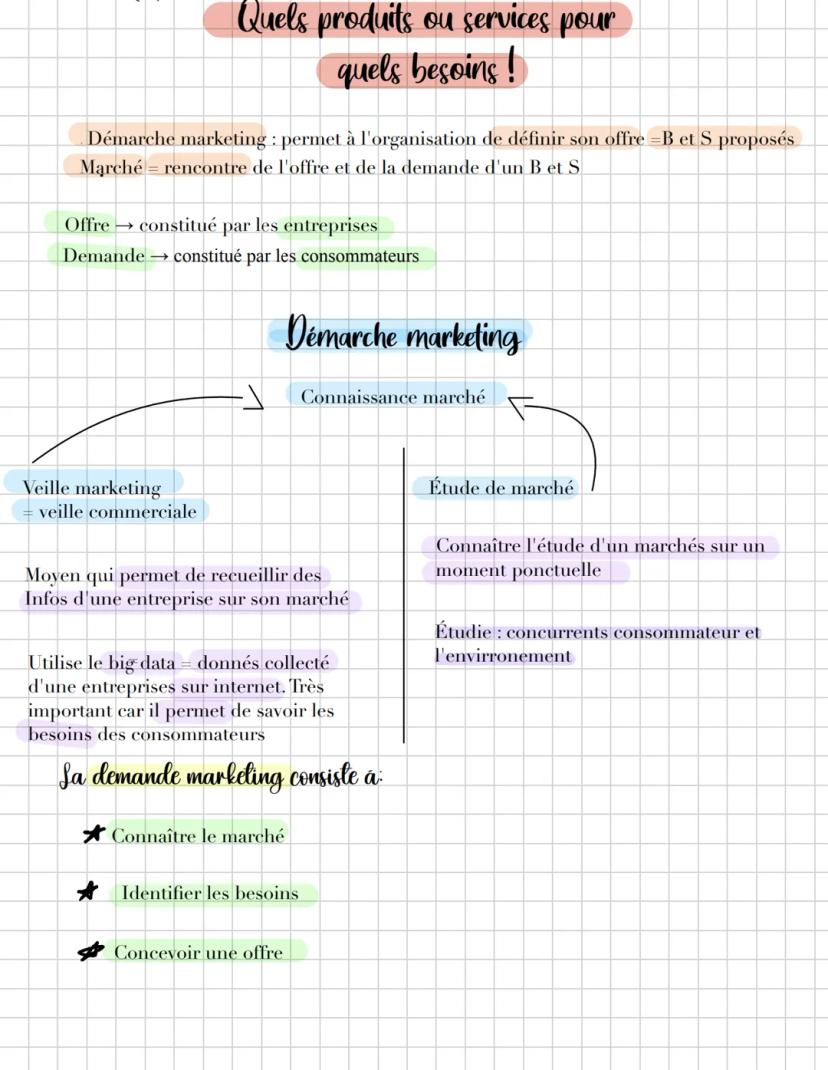 Quels produits ou services pour
quels besoins !
Démarche marketing : permet à l'organisation de définir son offre =B et S proposés
Marché = rencontre de l'offre et de la demande d'un B et S
Offre → constitué par les entreprises
Demande → constitué par les consommateurs
Démarche marketing
Connaissance marché
Veille marketing
= veille commerciale
Moyen qui permet de recueillir des
Infos d'une entreprise sur son marché
Utilise le big data = donnés collecté
d'une entreprises sur internet. Très
important car il permet de savoir les
besoins des consommateurs
Étude de marché
Connaître l'étude d'un marchés sur un
moment ponctuelle
Étudie : concurrents consommateur et
l'envirronement
La demande marketing consiste à:
Connaître le marché
Identifier les besoins
Concevoir une offre